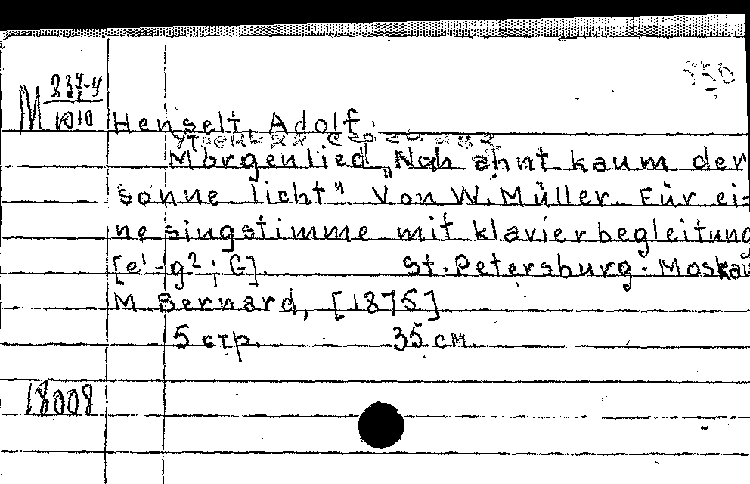 850
M 337-4
1010
Henselt, Adolf.
Morgenlied „Noch ahnt kaum der
sonne licht" Von W. Müller. Für ei-
ne singstimme mit klavierbegleitung
[e¹-g²; G]. St. Petersburg. Moskau
M Bernard, [1875]
5 стр. 35 см.
18008